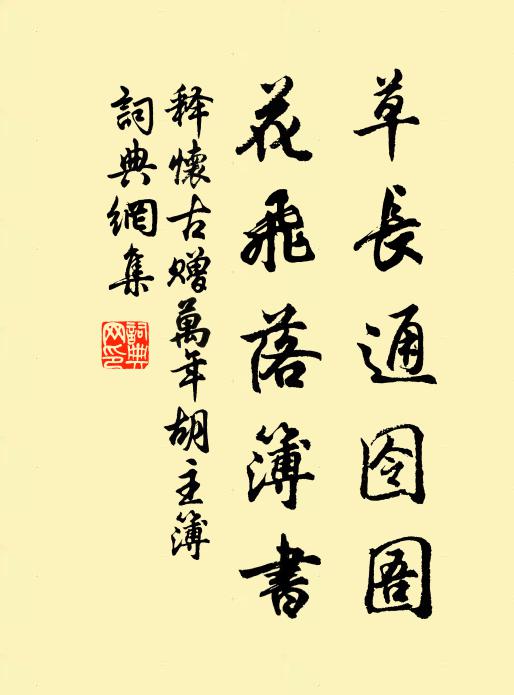 草長通囹圄
花飛落簿書
释懷古赠萬年胡主簿
詞典網集
詞典网印